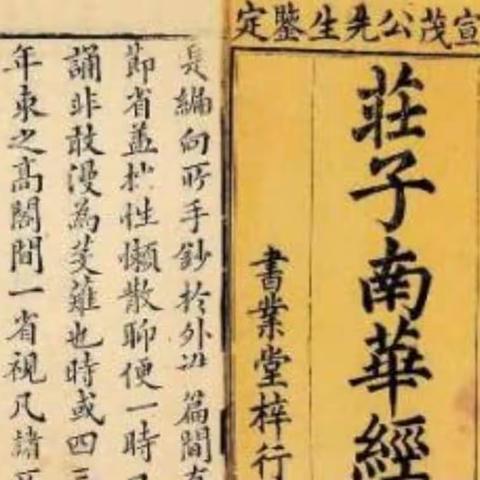 宣茂公先生鑒定
莊子南華經
書業堂梓行
是編向所手鈔於外 篇間
節省蓋 性懶散聊便一時
誦非敢漫為芟薙也時或四
年束之高閣間一省視凡諸